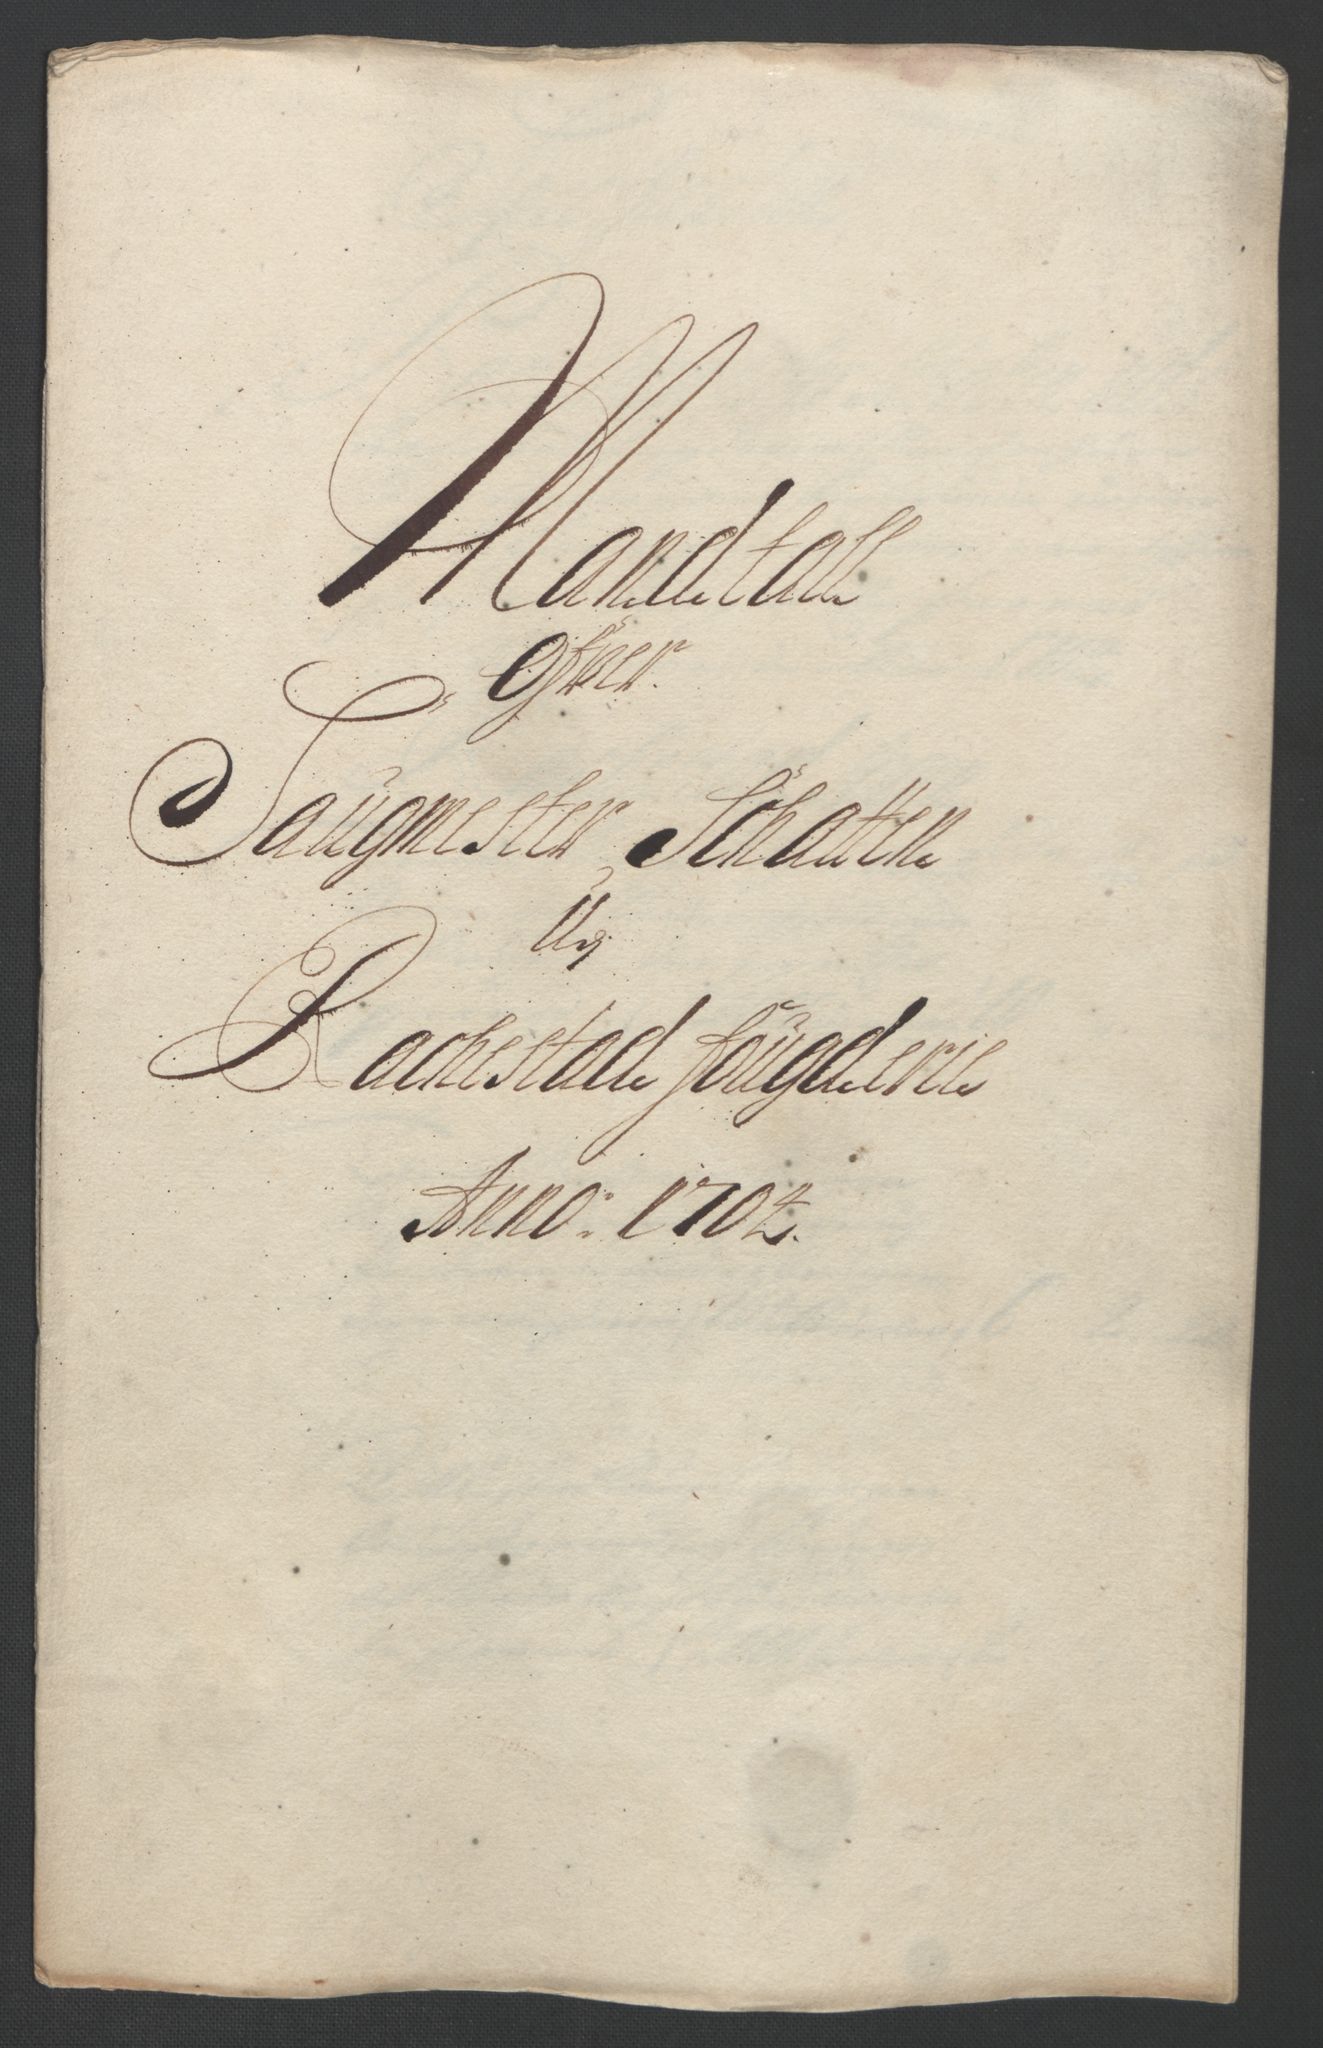 Mandtall
Ofwer
Saugmester Schatten
Udj
Rachestad fougderie
Anno: 1704.